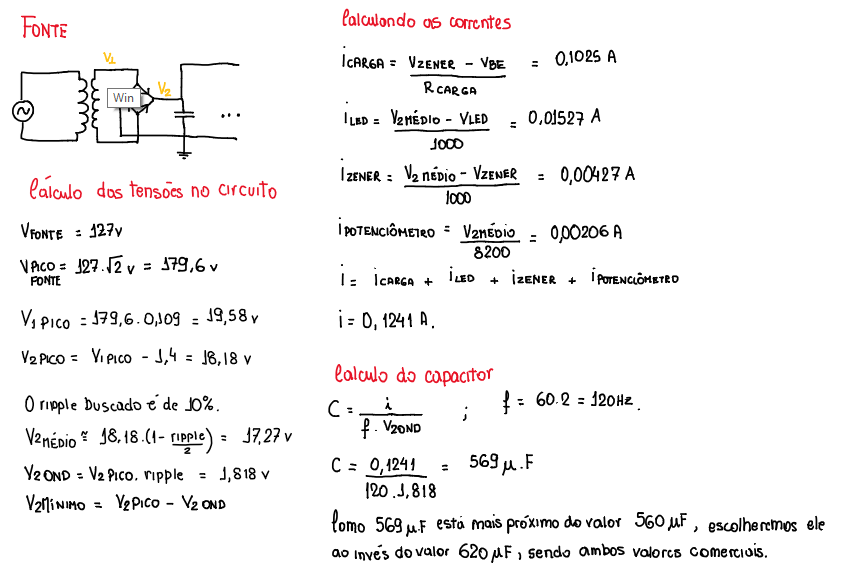 FONTE
V1
V2
Win
...
Cálculo das tensões no circuito
VFONTE = 127v
VPICO FONTE = 127.√2 v = 179,6 v
V1 PICO = 179,6 . 0,109 = 19,58 v
V2 PICO = V1 PICO - 1,4 = 18,18 v
O ripple buscado é de 10%.
V2MÉDIO ≅ 18,18.(1- ripple/2) = 17,27 v
V2 OND = V2 PICO. ripple = 1,818 v
V2MÍNIMO = V2PICO - V2 OND
Calculando as correntes
iCARGA = VZENER - VBE / RCARGA = 0,1025 A
iLED = V2MÉDIO - VLED / 1000 = 0,01527 A
iZENER = V2 MÉDIO - VZENER / 1000 = 0,00427 A
iPOTENCIÔMETRO = V2MÉDIO / 8200 = 0,00206 A
i = iCARGA + iLED + iZENER + iPOTENCIÔMETRO
i = 0,1241 A.
Calculo do capacitor
C = i / f. V2OND ; f = 60.2 = 120Hz.
C = 0,1241 / 120.1,818 = 569 μ.F
Como 569 μ.F está mais próximo do valor 560 μF, escolheremos ele
ao invés do valor 620 μF, sendo ambos valores comerciais.